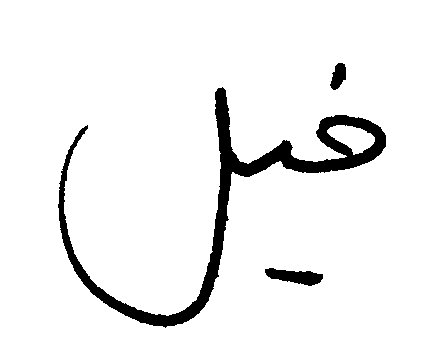 فيل